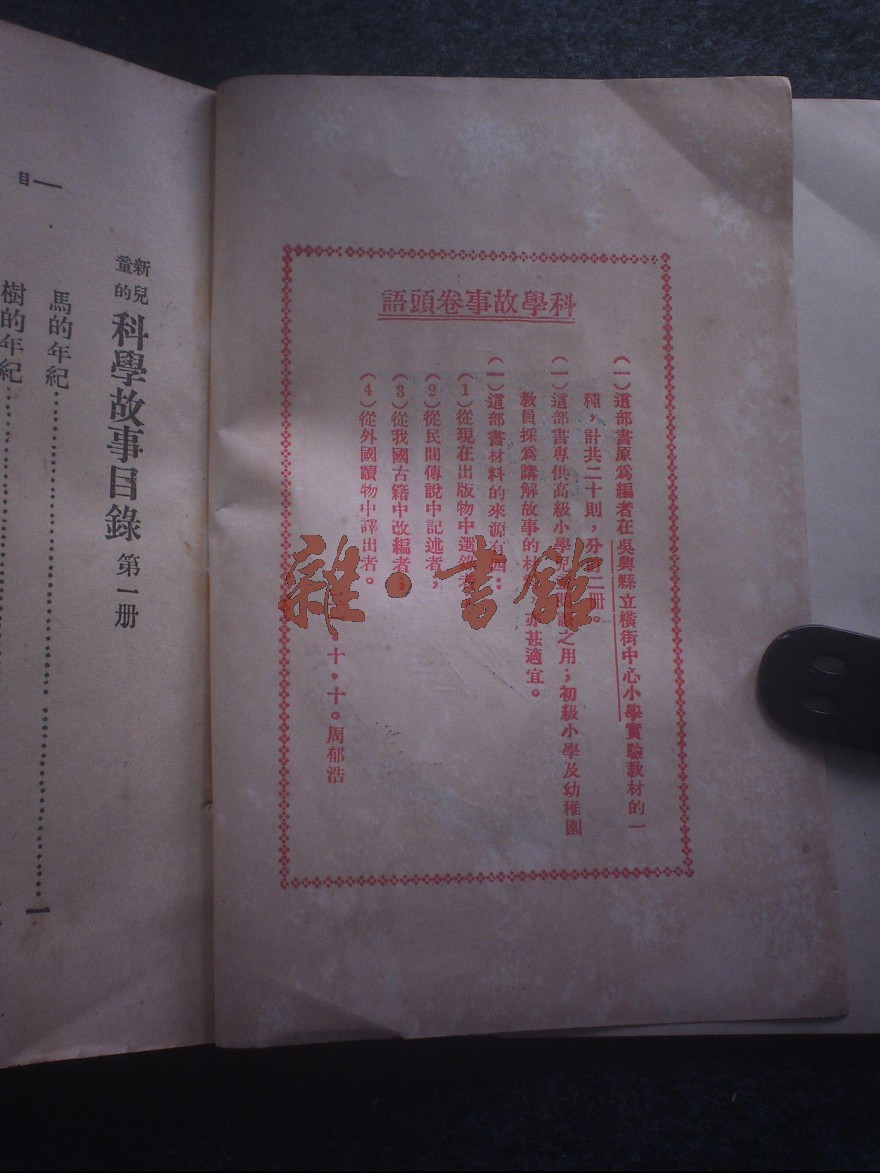 科學故事卷頭語
(一)這部書原爲編者在吳興縣立橫街中心小學實驗教材的一
種，計共二十則，分訂二冊。
(一)這部書專供高級小學兒童閱讀之用；初級小學及幼稚園
教員採爲講解故事的材料，亦甚適宜。
(一)這部書材料的來源有四：
(1)從現在出版物中選錄者；
(2)從民間傳說中記述者；
(3)從我國古籍中改編者；
(4)從外國讀物中譯出者。
十•十。周郁浩
目一
新兒童的科學故事目錄 第一册
馬的年紀 一
樹的年紀
雜·書館